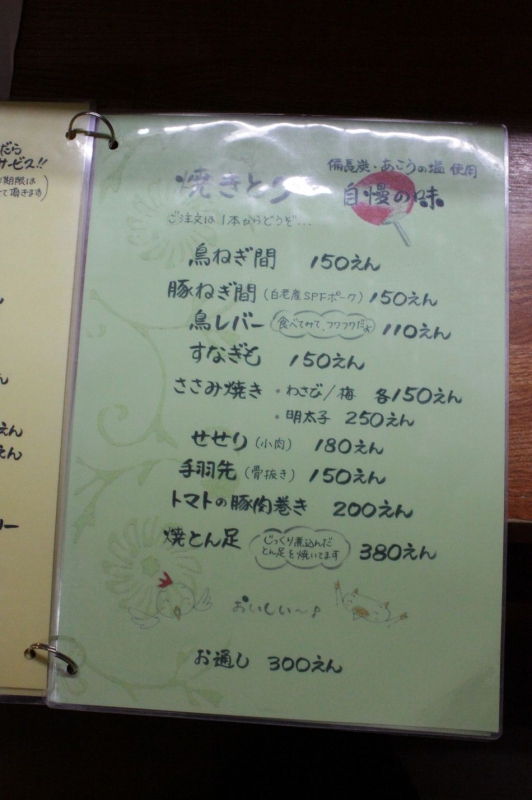 だら
サービス!!
期限は
て頂きます
えん
えん
備長炭・あこうの塩 使用
焼きとり 自慢の味
ご注文は1本からどうぞ...
鳥ねぎ間 150えん
豚ねぎ間(白老産SPFポーク)150えん
鳥レバー 食べてみて、フワフワだよ 110えん
すなぎも 150えん
ささみ焼き ・わさび/梅 各150えん
・明太子 250えん
せせり(小肉) 180えん
手羽先(骨抜き) 150えん
トマトの豚肉巻き 200えん
焼とん足 じっくり煮込んだ
とん足を焼いてます 380えん
おいしい〜♪
お通し 300えん